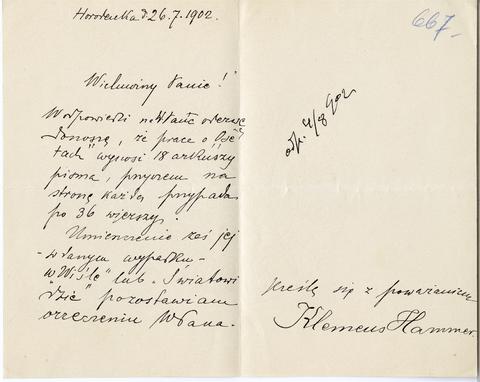 Horodenka d. 26.7.1902.
Wielmożny Panie!
W odpowiedzi na WPana odezwę
donoszę, że praca o "Osę-
tach" wynosi 18 arkuszy
pisma, przyczem na
stronę każdą przypada
po 36 wierszy.
Umieszczenie zaś jej
- w danym wypadku -
w "Wiśle" lub "Światowi-
dzie" pozostawiam
orzeczeniu WPana.
667.
odp. 4/8 902
Kreślę się z poważaniem
Klemens Hammer.